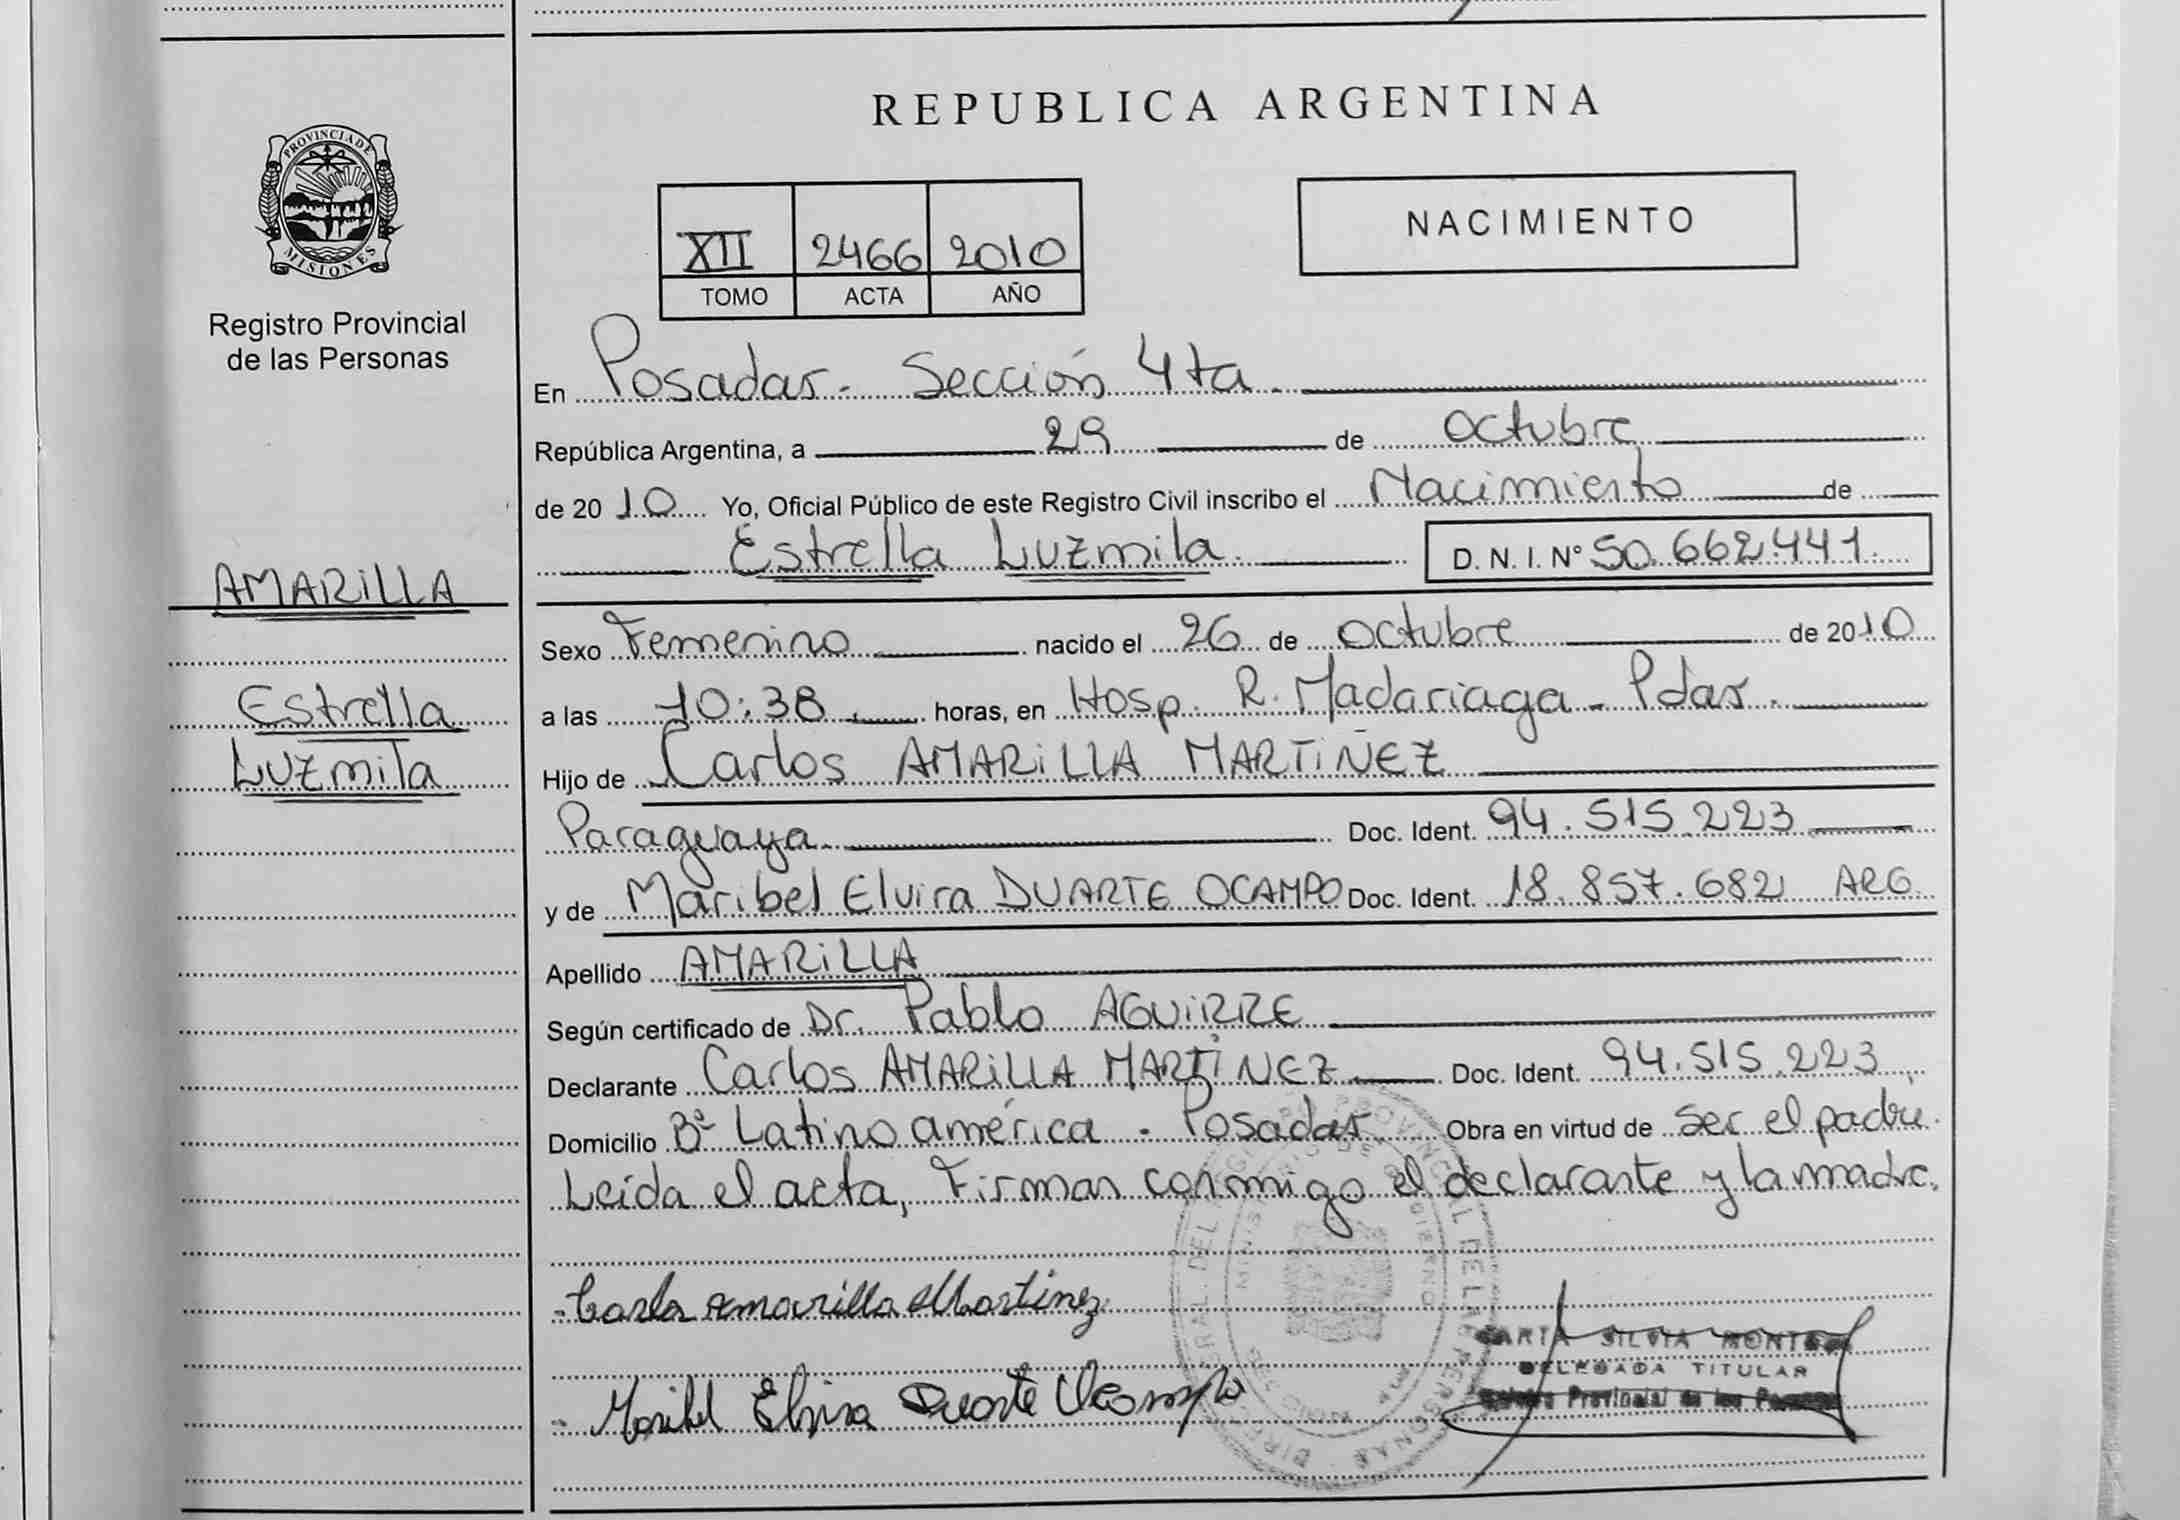 PROVINCIA DE
MISIONES
Registro Provincial
de las Personas
AMARILLA
Estrella
Luzmila
REPUBLICA ARGENTINA
NACIMIENTO
XII 2466 2010
TOMO ACTA AÑO
En Posadas. Sección 4ta.
República Argentina, a 29 de octubre
de 2010 Yo, Oficial Público de este Registro Civil inscribo el Nacimiento de
Estrella Luzmila. D. N. I. N° 50.662.441.
Sexo Femenino nacido el 26 de octubre de 2010
a las 10:38 horas, en Hosp. R. Madariaga - Pdas.
Hijo de Carlos AMARILLA MARTIÑEZ
Paraguaya Doc. Ident. 94.515.223
y de Maribel Elvira DUARTE OCAMPO Doc. Ident. 18.857.682 ARG.
Apellido AMARILLA
Según certificado de Dr. Pablo AGUIRRE
Declarante Carlos AMARILLA MARTINEZ Doc. Ident. 94.515.223
Domicilio Bº Latinoamérica - Posadas Obra en virtud de ser el padre.
Leída el acta, Firman conmigo el declarante y la madre.
Amarilla Martinez
Maribel Elvira Duarte Ocampo
SILVIA
DELEGADA TITULAR
Provincial de las